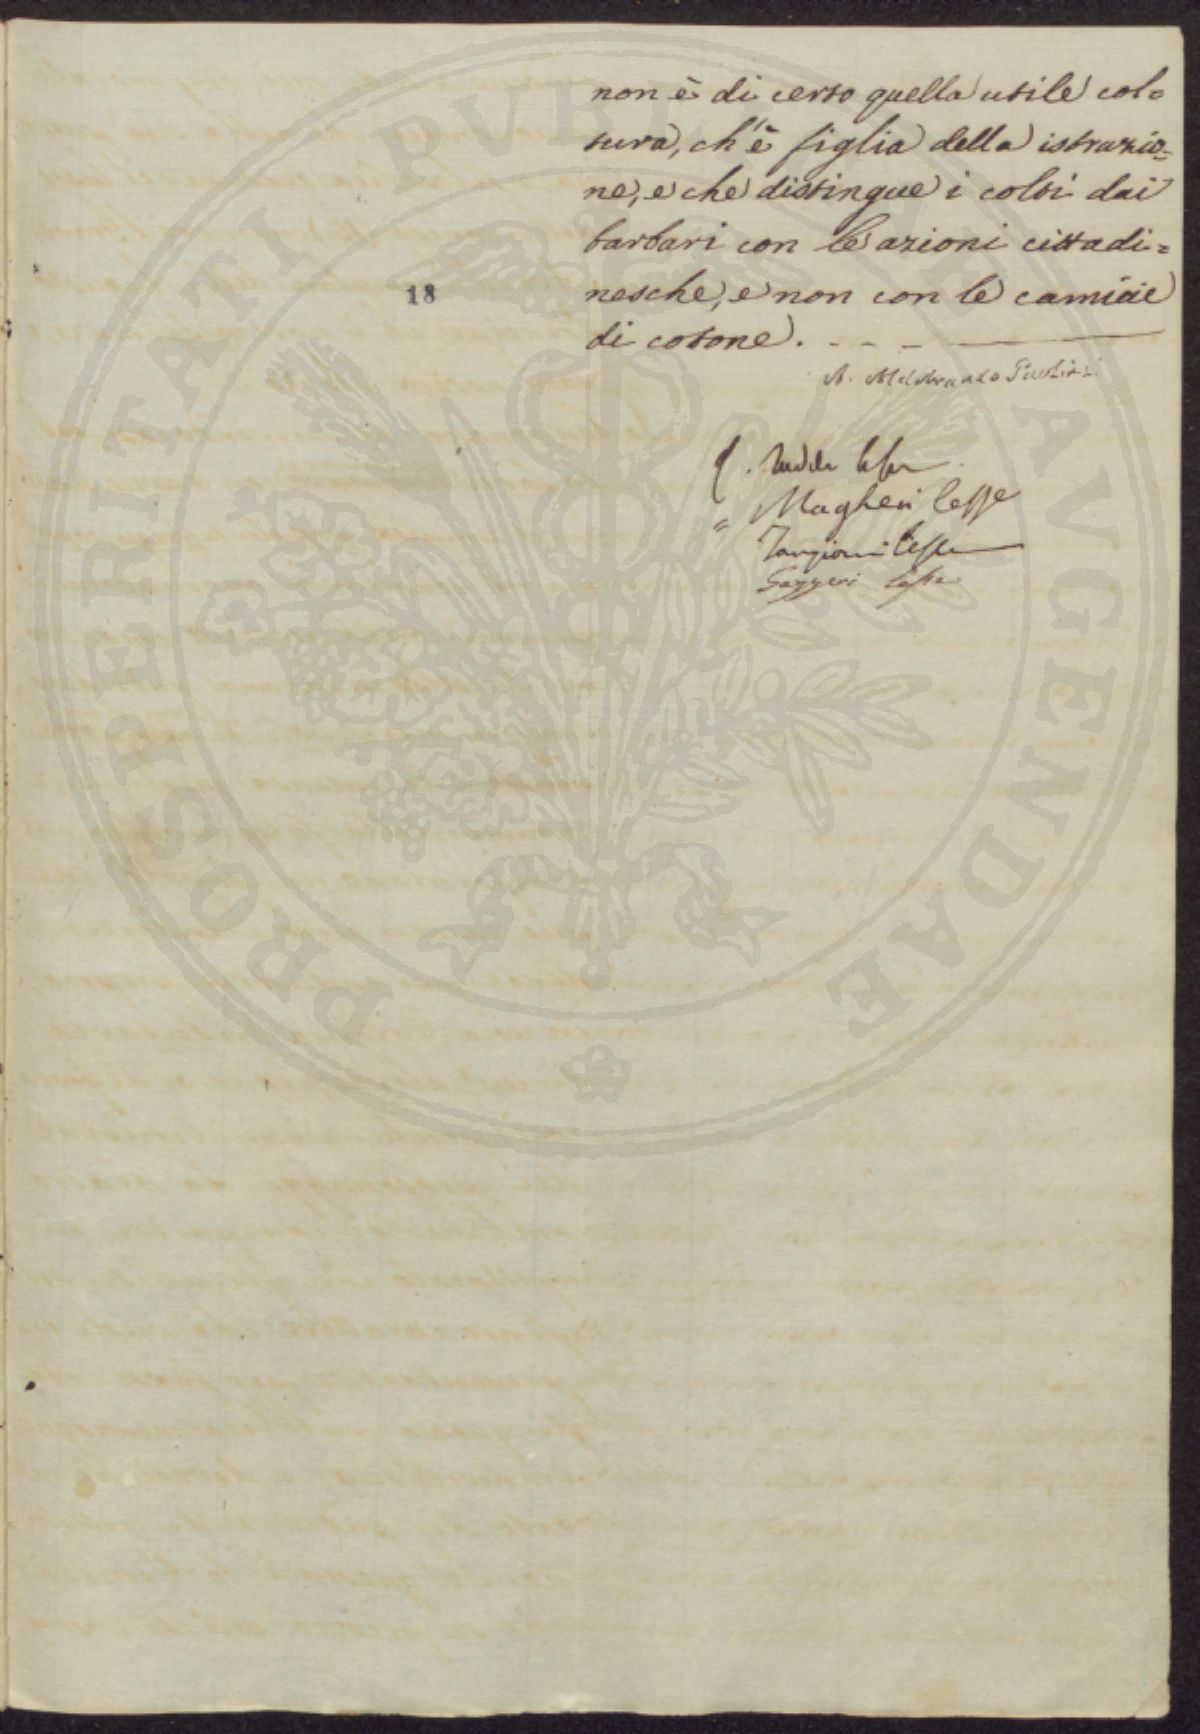 non è di certo quella utile col=
tura, ch'è figlia della istruzio=
ne, e che distingue i colti dai
barbari con le azioni cittadi=
nesche, e non con le camicie
di cotone.
18
A. Aldobrando Paolini
Magheri Lesse
Targioni Lesse
Gazzeri Lesse
PROSPERITATI PVBLICAE AVGENDAE